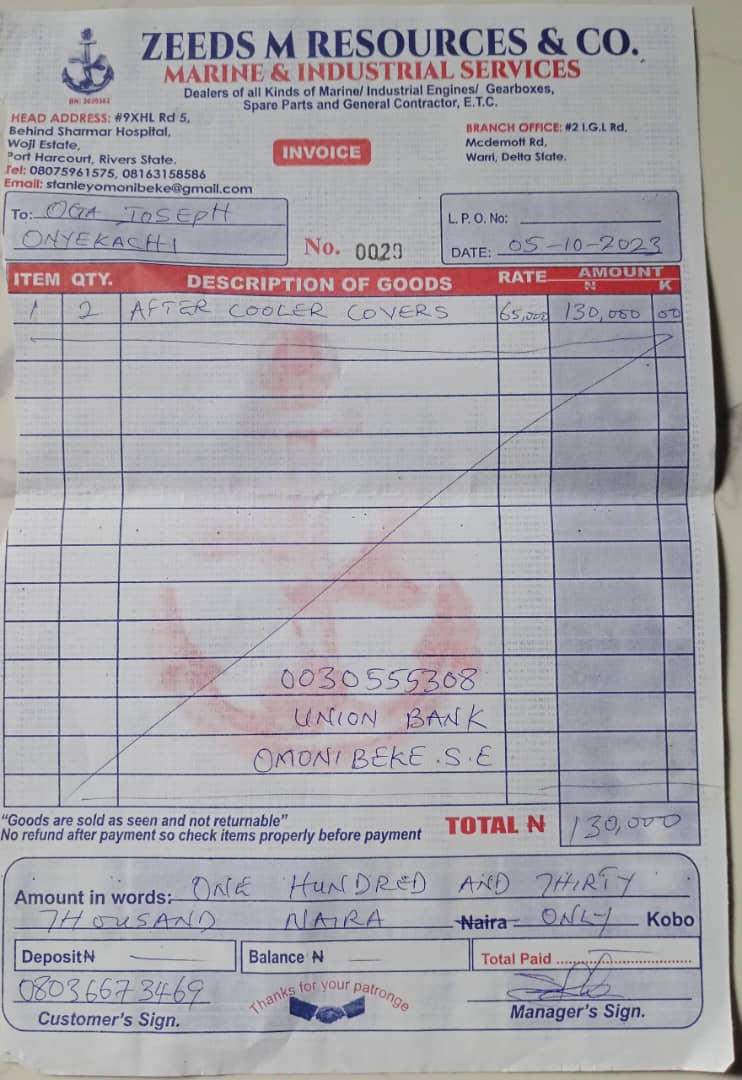 ZEEDS M RESOURCES & CO.
MARINE & INDUSTRIAL SERVICES
Dealers of all Kinds of Marine/ Industrial Engines/ Gearboxes,
Spare Parts and General Contractor, E.T.C.
HEAD ADDRESS: #9XHL Rd 5,
Behind Sharmar Hospital,
Woji Estate,
Port Harcourt, Rivers State.
Tel: 08075961575, 08163158586
Email: stanleyomonibeke@gmail.com
INVOICE
BRANCH OFFICE: #2 I.G.L Rd,
Mcdemott Rd,
Warri, Delta State.
To: OGA JOSEPH
ONYEKACHI
No. 0029
L.P.O. No:
DATE: 05-10-2023
ITEM QTY. DESCRIPTION OF GOODS RATE AMOUNT
N K
1 2 AFTER COOLER COVERS 65,000 130,000 00
0030555308
UNION BANK
OMONIBEKE .S.E
"Goods are sold as seen and not returnable"
No refund after payment so check items properly before payment
TOTAL N 130,000
Amount in words: ONE HUNDRED AND THIRTY
THOUSAND NAIRA Naira ONLY Kobo
Deposit N
Balance N
Total Paid
08036673469
Customer's Sign.
Thanks for your patronge
Manager's Sign.